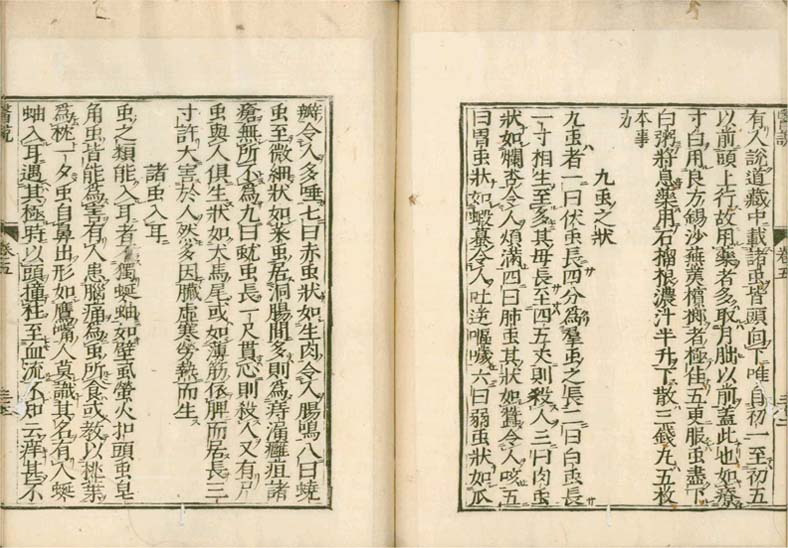 有人說道藏中載諸虫皆頭向下唯自初一至初五
以前頭上行故用藥者多取月朏以前蓋此也如療
寸白用良方錫沙蕪荑檳榔者極佳五更服虫盡下
白粥將息藥用石榴根濃汁半升下散三錢丸五枚
本事方
九虫之狀
九虫者一曰伏虫長四分為羣虫之長二曰白虫長
一寸相生至多其母長至四五丈則殺人三曰肉虫
狀如爛李令人煩滿四曰肺虫其狀如蠶令人咳五
曰胃虫狀如蝦蟇令人吐逆嘔噦六曰弱虫狀如瓜
瓣令人多唾七曰赤虫狀如生肉令人腸鳴八曰蟯
虫至微細狀如菜虫居洞腸間多則為痔漏癰疽諸
瘡無所不為九曰蚘虫長一尺貫心則殺人又有尸
虫與人俱生狀如犬馬尾或如薄筋依脾而居長三
寸許大害於人然多因臟虛寒勞熱而生
諸虫入耳
虫之類能入耳者不獨蜒蚰如壁虱螢火扣頭虫皂
角虫皆能為害有人患腦痛為虫所食或教以桃葉
為枕一夕虫自鼻出形如鷹嘴人莫識其名有人蜒
蚰入耳遇其極時以頭撞柱至血流不知云痒甚不
醫說
卷五